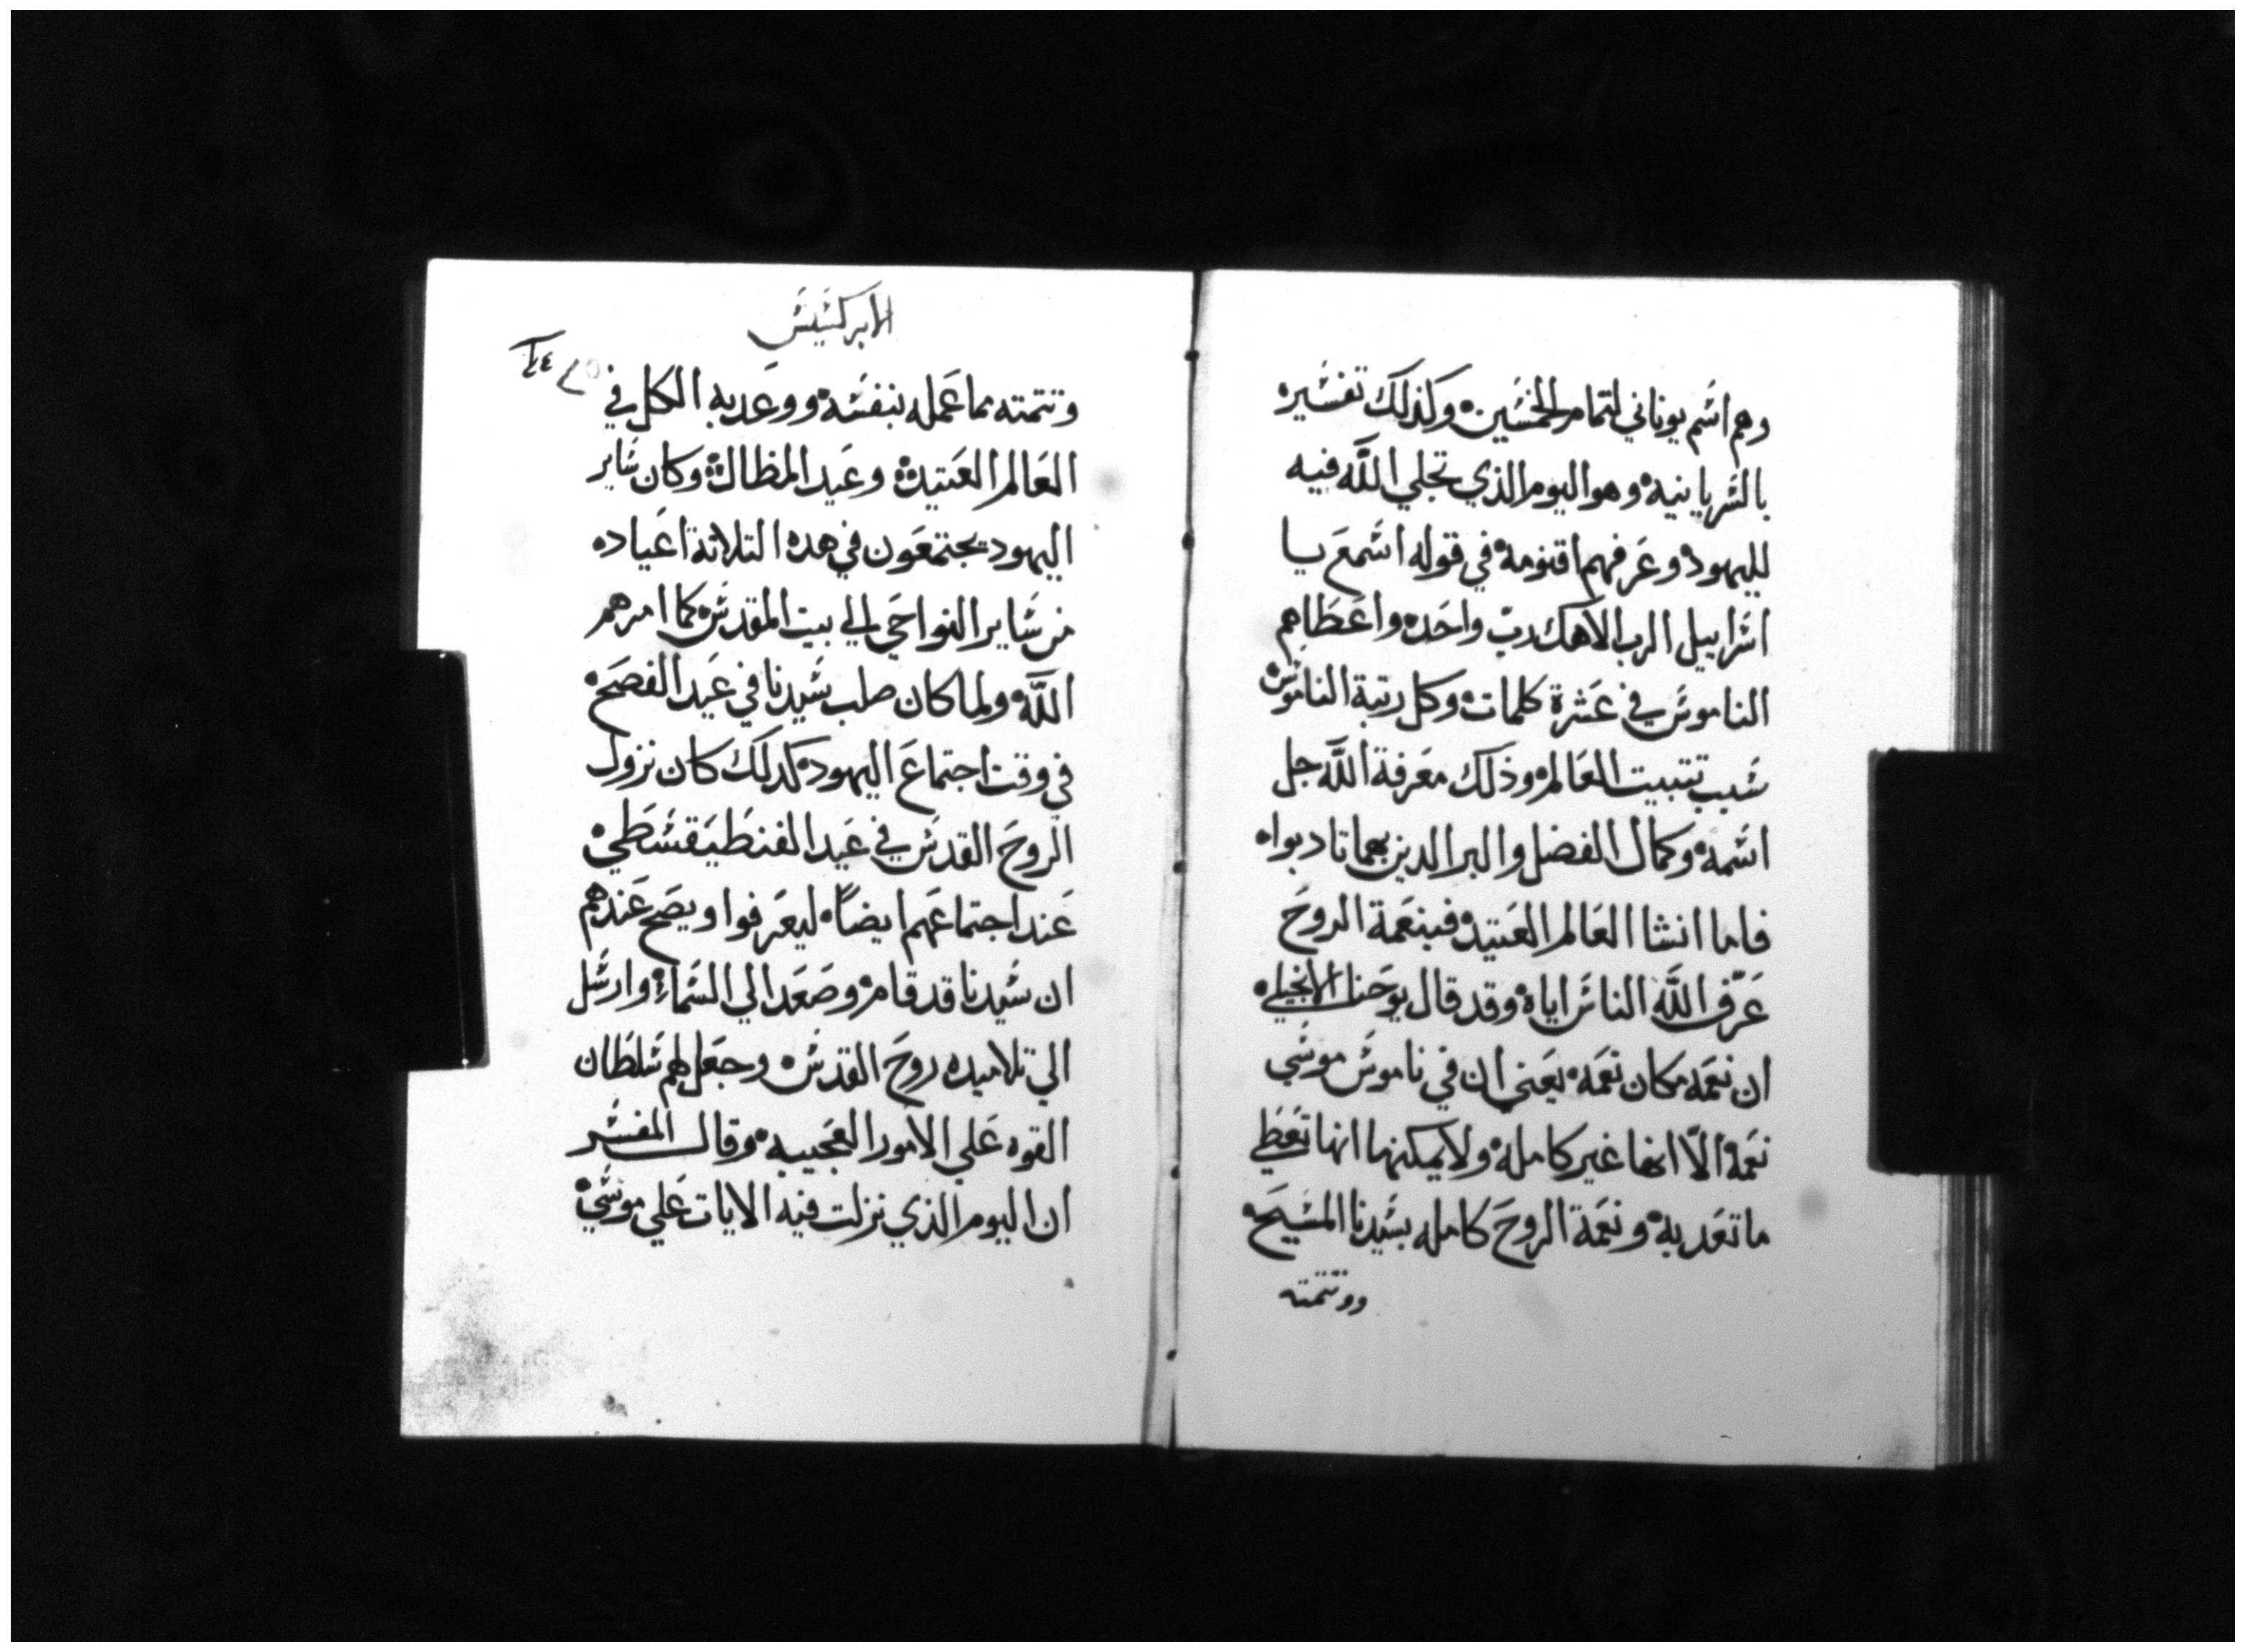 وهم اسم يوناني لتمام الخمسين وكذلك تفسيره
بالسريانيه وهو اليوم الذي تجلي اللّه فيه
لليهود وعرفهم اقنومه في قوله اسمع يا
اسراييل الرب الاهك ربّ واحد واعطاهم
الناموس في عشرة كلمات وكل رتبة الناموس
سبب تتبيت العالم وذلك معرفة اللّه جل
اسمه وكمال الفضل والبر الدين بهما تادبوا
فاما انشا العالم العتيد فبنعمة الروح
عرّف اللّه الناس اياه وقد قال يوحنا الانجيلي
ان نعمه مكان نعمه يعني ان في ناموس موسي
نعمه الّا انها غير كامله ولا يمكنها انها تعطي
ما تعد به ونعمة الروح كامله بسيدنا المسيح
ووتتمته
الابركسيس
٢٤
وتتمته بما عمله بنفسه ووعد به الكل في
العالم العتيد وعيد المظال وكان ساير
اليهود يجتمعون في هده التلاتة اعياد
من ساير النواحي الي بيت المقدس كما امرهم
اللّه ولما كان صلب سيدنا في عيد الفصح
في وقت اجتماع اليهود كدلك كان نزول
الروح القدس في عيد الفنطيقسطي
عند اجتماعهم ايضاً ليعرفوا ويصح عندهم
ان سيدنا قد قام وصعد الي السماء وارسل
الي تلاميده روح القدس وجعل لهم سلطان
القوه علي الامور العجيبه وقال المفسر
ان اليوم الذي نزلت فيه الايات علي موسي